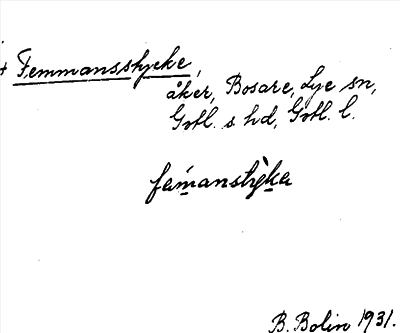 + Femmansstycke,
åker, Bosare, Lye sn,
Gotl. s. hd, Gotl. l.
fam̄anstỳka
B. Bolin 1931.